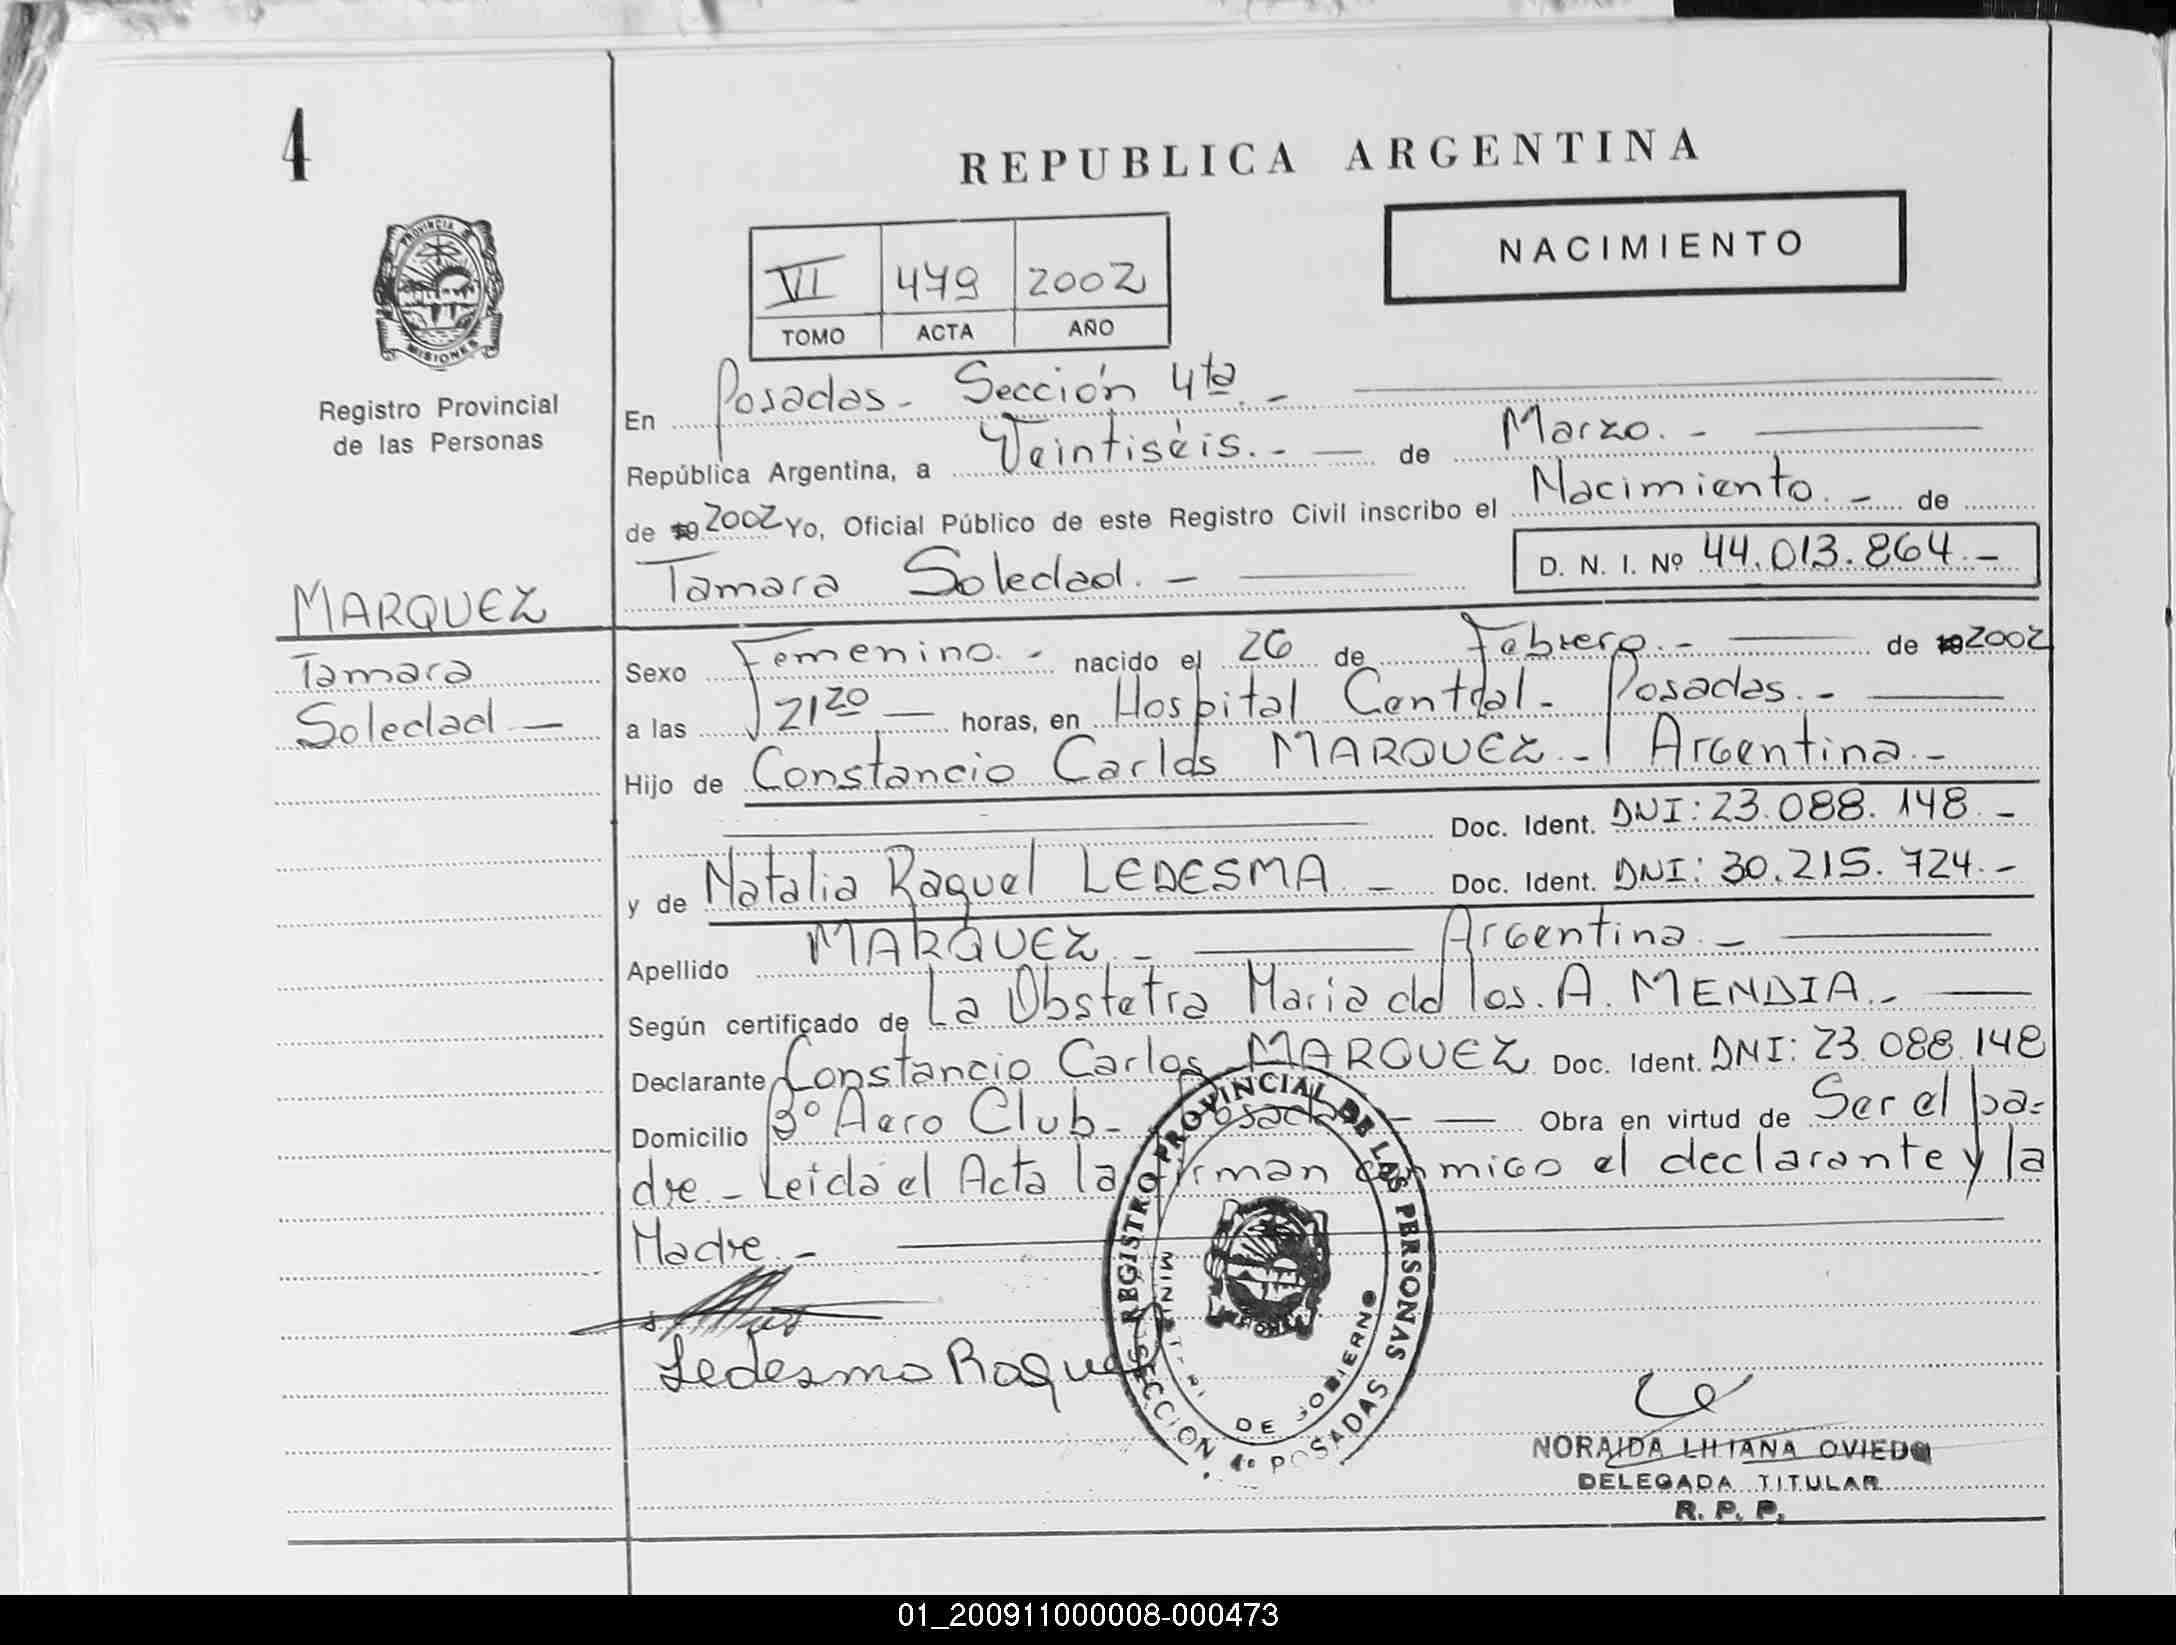 4
REPUBLICA ARGENTINA
PROVINCIA DE
MISIONES
Registro Provincial
de las Personas
NACIMIENTO
VI 479 2002
TOMO ACTA AÑO
En Posadas - Sección 4ta. -
República Argentina, a Veintiséis. - de Marzo. -
de 19 2002 Yo, Oficial Público de este Registro Civil inscribo el Nacimiento. - de
Tamara Soledad. - D. N. I. Nº 44.013.864. -
MARQUEZ
Tamara
Soledad —
Sexo Femenino. - nacido el 26 de Febrero. - de 19 2002
a las 21 20 — horas, en Hospital Central - Posadas. -
Hijo de Constancio Carlos MARQUEZ - Argentina. -
Doc. Ident. DNI: 23.088.148. -
y de Natalia Raquel LEDESMA. - Doc. Ident. DNI: 30.215.724. -
Apellido MARQUEZ. - Argentina. -
Según certificado de La Obstetra Maria de los. A. MENDIA. -
Declarante Constancio Carlos MARQUEZ Doc. Ident. DNI: 23.088.148
Domicilio Bº Aero Club - Posadas - Obra en virtud de Ser el pa-
dre - Leida el Acta la firman conmigo el declarante y la
Madre. -
Ledesma Raquel
REGISTRO PROVINCIAL DE LAS PERSONAS
DE GOBIERNO
SECCION 4º POSADAS
NORAIDA LILIANA OVIEDO
DELEGADA TITULAR
R. P. P.
01_200911000008-000473